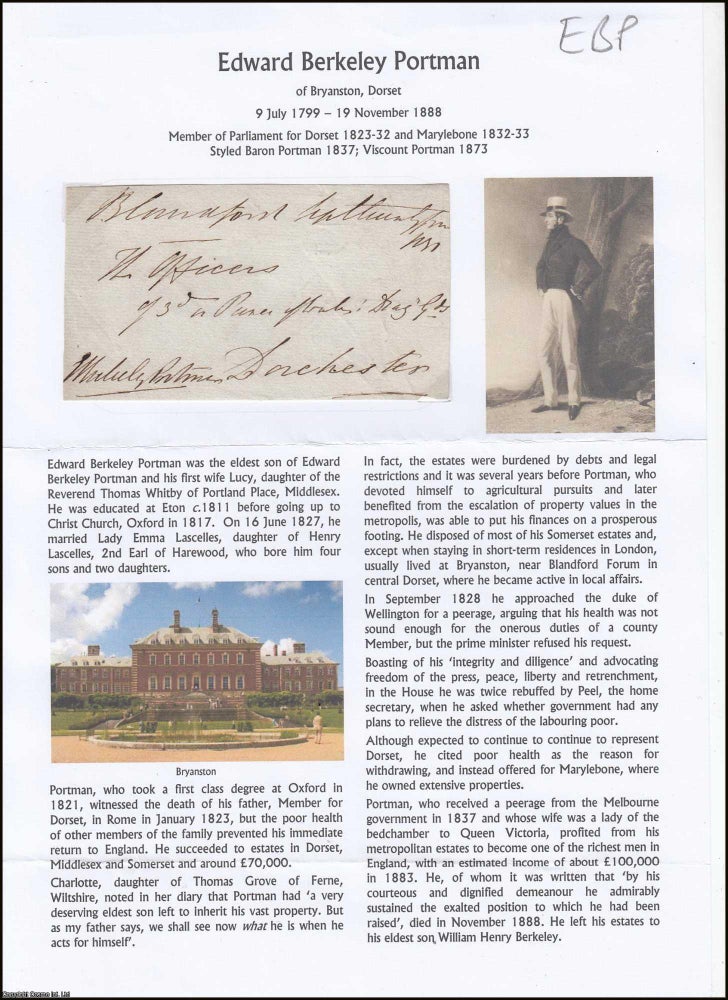 EBP
Edward Berkeley Portman
of Bryanston, Dorset
9 July 1799 – 19 November 1888
Member of Parliament for Dorset 1823-32 and Marylebone 1832-33
Styled Baron Portman 1837; Viscount Portman 1873
Blandford
The Officers
Dorchester
Edward Berkeley Portman was the eldest son of Edward
Berkeley Portman and his first wife Lucy, daughter of the
Reverend Thomas Whitby of Portland Place, Middlesex.
He was educated at Eton c.1811 before going up to
Christ Church, Oxford in 1817. On 16 June 1827, he
married Lady Emma Lascelles, daughter of Henry
Lascelles, 2nd Earl of Harewood, who bore him four
sons and two daughters.
Bryanston
Portman, who took a first class degree at Oxford in
1821, witnessed the death of his father, Member for
Dorset, in Rome in January 1823, but the poor health
of other members of the family prevented his immediate
return to England. He succeeded to estates in Dorset,
Middlesex and Somerset and around £70,000.
Charlotte, daughter of Thomas Grove of Ferne,
Wiltshire, noted in her diary that Portman had 'a very
deserving eldest son left to inherit his vast property. But
as my father says, we shall see now what he is when he
acts for himself'.
In fact, the estates were burdened by debts and legal
restrictions and it was several years before Portman, who
devoted himself to agricultural pursuits and later
benefited from the escalation of property values in the
metropolis, was able to put his finances on a prosperous
footing. He disposed of most of his Somerset estates and,
except when staying in short-term residences in London,
usually lived at Bryanston, near Blandford Forum in
central Dorset, where he became active in local affairs.
In September 1828 he approached the duke of
Wellington for a peerage, arguing that his health was not
sound enough for the onerous duties of a county
Member, but the prime minister refused his request.
Boasting of his 'integrity and diligence' and advocating
freedom of the press, peace, liberty and retrenchment,
in the House he was twice rebuffed by Peel, the home
secretary, when he asked whether government had any
plans to relieve the distress of the labouring poor.
Although expected to continue to continue to represent
Dorset, he cited poor health as the reason for
withdrawing, and instead offered for Marylebone, where
he owned extensive properties.
Portman, who received a peerage from the Melbourne
government in 1837 and whose wife was a lady of the
bedchamber to Queen Victoria, profited from his
metropolitan estates to become one of the richest men in
England, with an estimated income of about £100,000
in 1883. He, of whom it was written that 'by his
courteous and dignified demeanour he admirably
sustained the exalted position to which he had been
raised', died in November 1888. He left his estates to
his eldest son, William Henry Berkeley.
Copyright Cosmo Ltd. Ltd